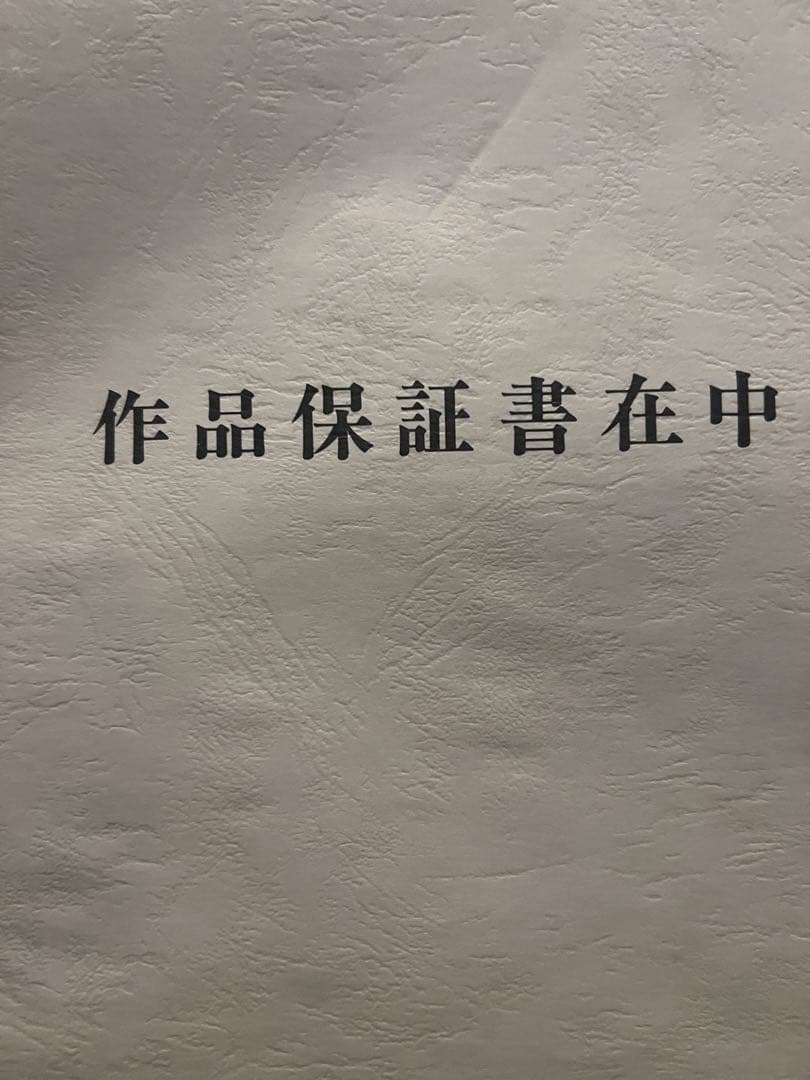 作品保証書在中